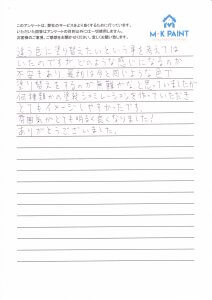 このアンケートは、弊社のサービスをより良くするために行っています。
いただいた回答はアンケートの目的以外には一切使用しません。
お客様のご意見、ご感想をお聞かせください。宜しくお願い致します。
M·K PAINT
違う色に塗り替えたいという事を考えては
いたのですがどのような感じになるのか
不安もあり最初は今と同じような色で
塗り替えをするのが無難かなと思っていましたが
何種類かの塗装シミュレーションを作っていただき
とてもイメージしやすかったです。
雰囲気がとても明るく良くなりました!
ありがとうございました。